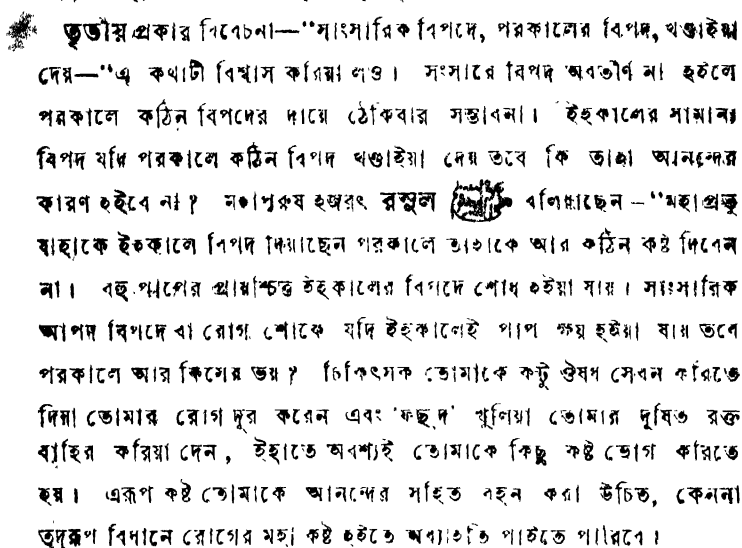 তৃতীয় প্রকার বিবেচনা—"সাংসারিক বিপদে, পরকালের বিপদ, খণ্ডাইয়া
দেয়—"এ কথাটী বিশ্বাস করিয়া লও। সংসারে বিপদ অবতীর্ণ না হইলে
পরকালে কঠিন বিপদের দায়ে ঠেকিবার সম্ভাবনা। ইহকালের সামান্য
বিপদ যদি পরকালে কঠিন বিপদ খণ্ডাইয়া দেয় তবে কি তাহা আনন্দের
কারণ হইবে না? মহাপুরুষ হজরৎ রসুল বলিয়াছেন–"মহাপ্রভু
যাহাকে ইহকালে বিপদ দিয়াছেন পরকালে তাহাকে আর কঠিন কষ্ট দিবেন
না। বহু পাপের প্রায়শ্চিত্ত ইহকালের বিপদে শোধ হইয়া যায়। সাংসারিক
আপদ বিপদে বা রোগ শোকে যদি ইহকালেই পাপ ক্ষয় হইয়া যায় তবে
পরকালে আর কিসের ভয়? চিকিৎসক তোমাকে কটু ঔষধ সেবন করিতে
দিয়া তোমার রোগ দূর করেন এবং 'ফছদ' খুলিয়া তোমার দূষিত রক্ত
বাহির করিয়া দেন, ইহাতে অবশ্যই তোমাকে কিছু কষ্ট ভোগ করিতে
হয়। এরূপ কষ্ট তোমাকে আনন্দের সহিত বহন করা উচিত, কেননা
তদ্রূপ বিধানে রোগের মহা কষ্ট হইতে অব্যাহতি পাইতে পারিবে।